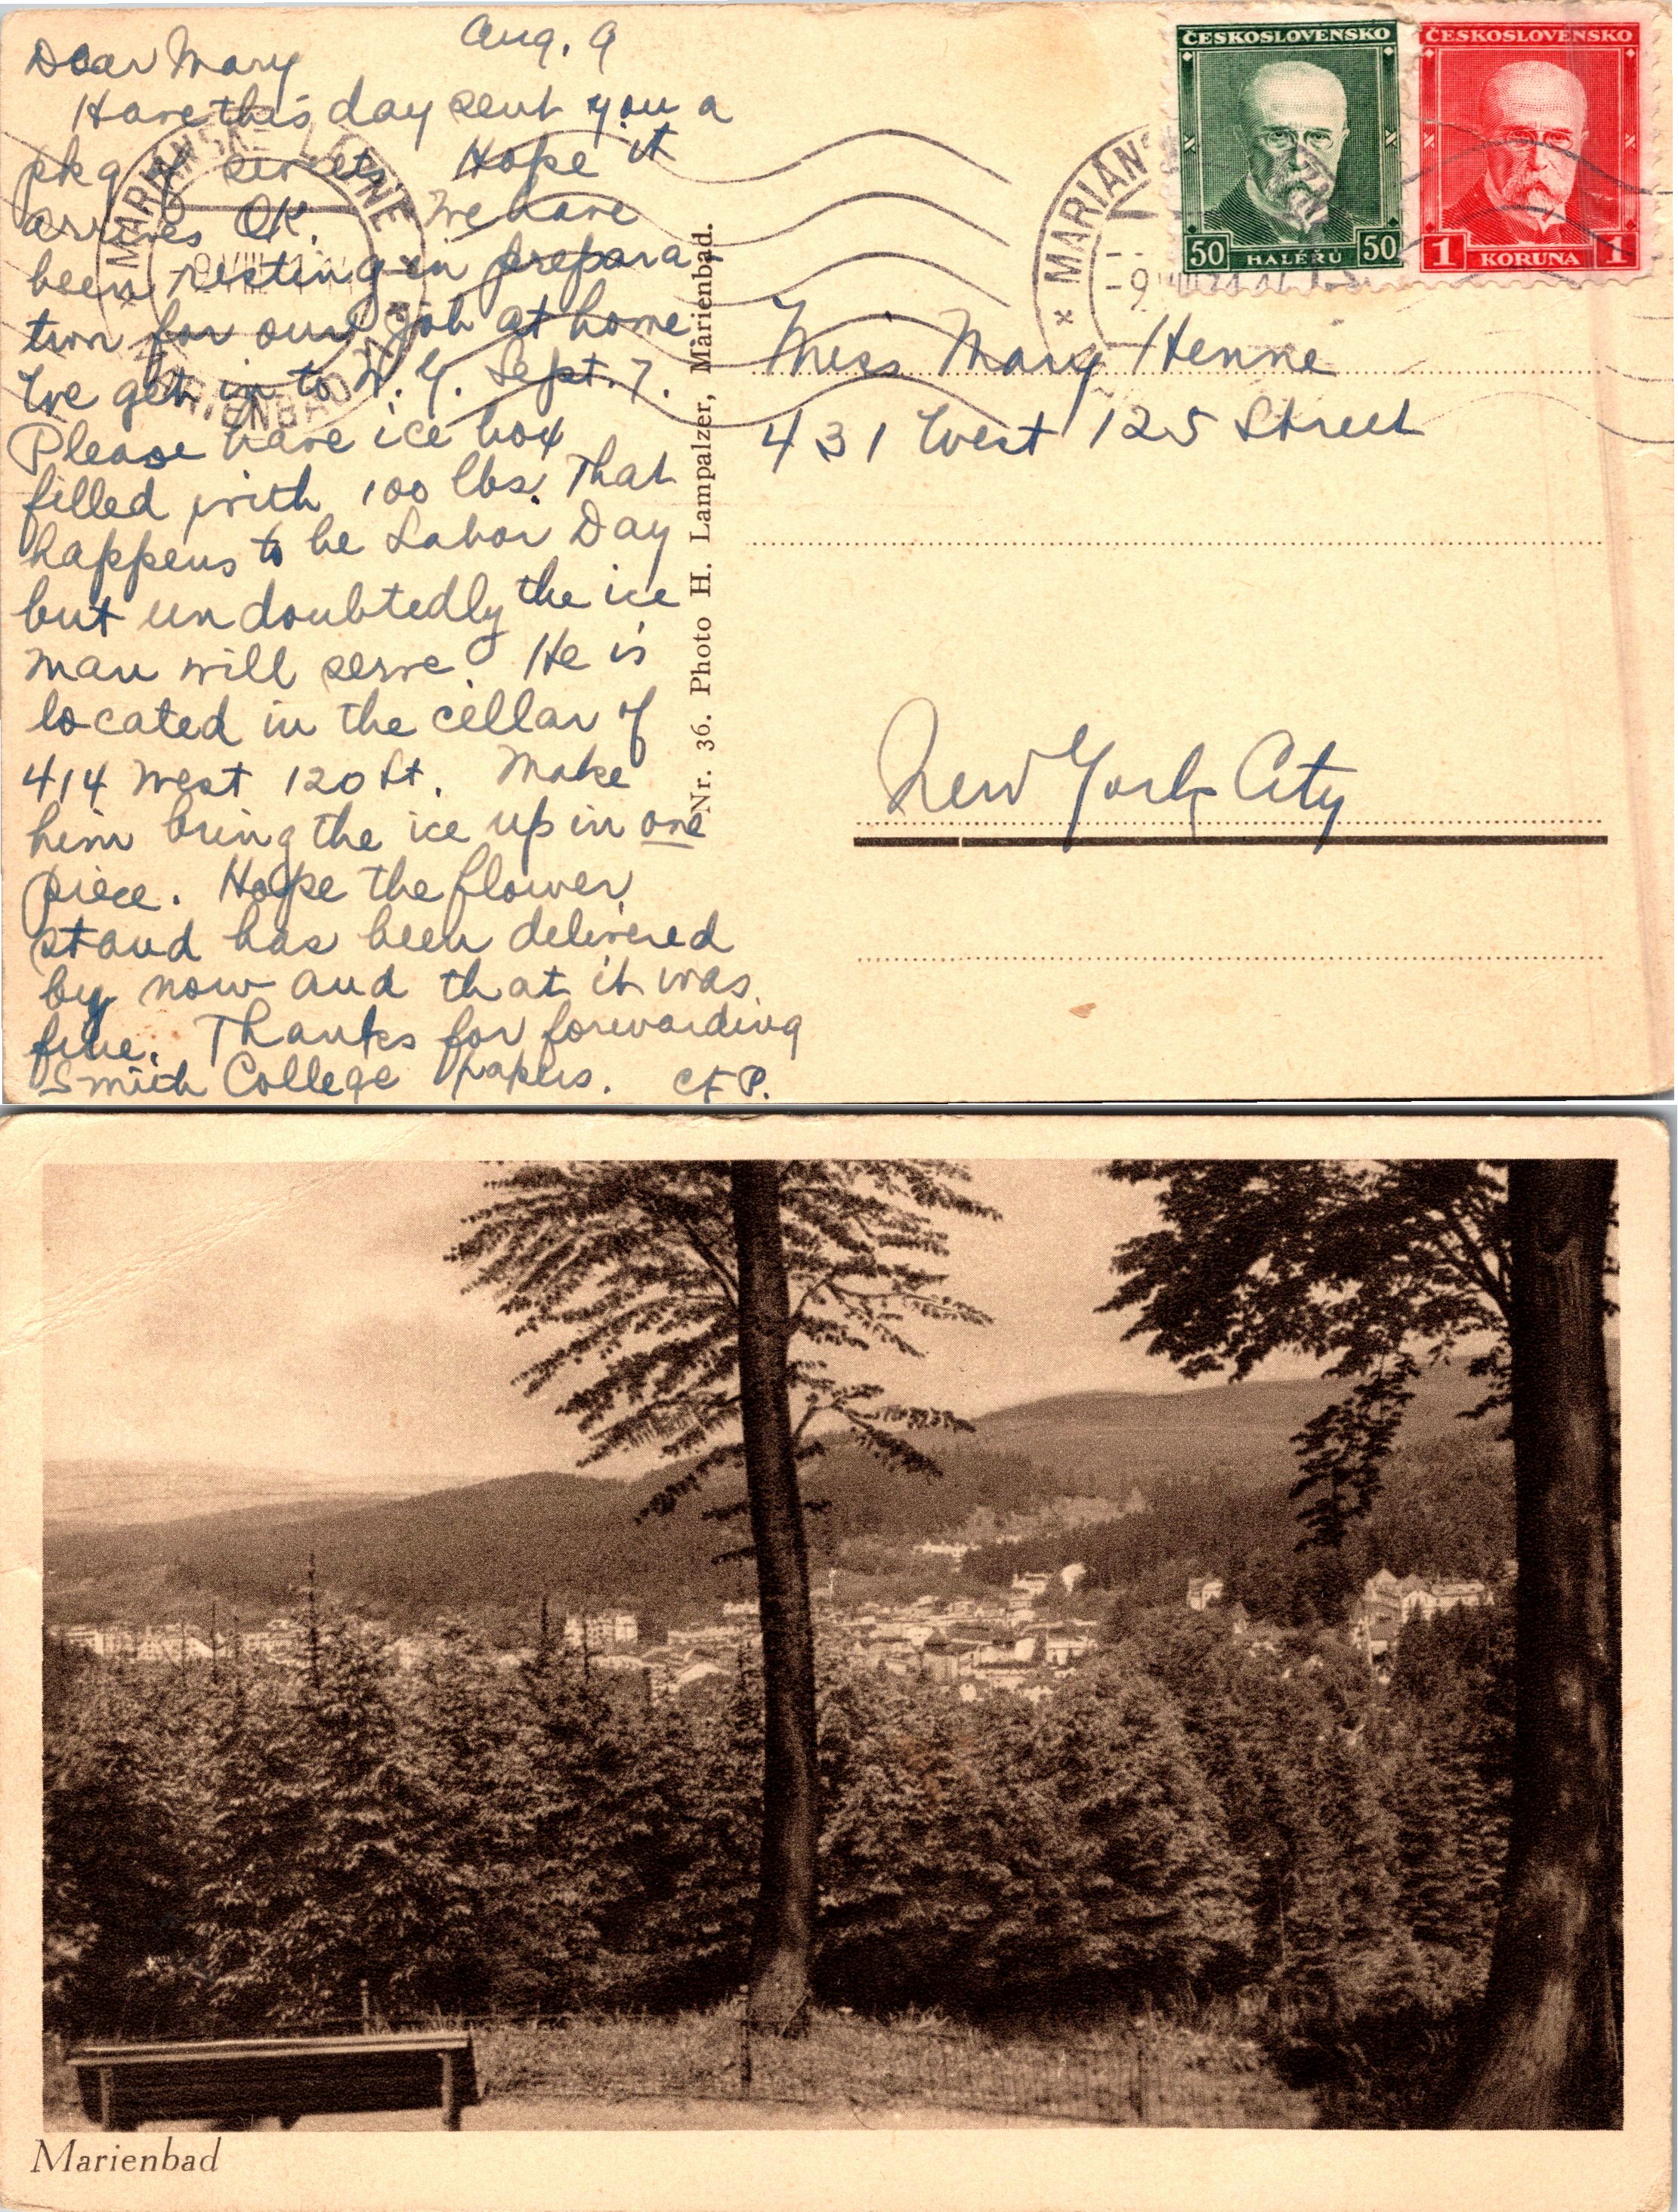 Aug. 9
Dear Mary
Have this day sent you a
pkg of sweets. Hope it
arrives OK. We have
been resting in prepara-
tion for our job at home
We get in to N.Y. Sept. 7.
Please have ice box
filled with 100 lbs. That
happens to be Labor Day
but undoubtedly the ice
man will serve. He is
located in the cellar of
414 West 120 St. Make
him bring the ice up in one
piece. Hope the flower
stand has been delivered
by now and that it was
fine. Thanks for forwarding
Smith College papers. CFP.
MARIÁNSKÉ LÁZNĚ
MARIENBAD
Nr. 36. Photo H. Lampalzer, Marienbad.
ČESKOSLOVENSKO
50 HALÉŘŮ 50
ČESKOSLOVENSKO
1 KORUNA 1
MARIÁN
-9.VIII
Miss Mary Henne
431 West 125 Street
New York City
Marienbad